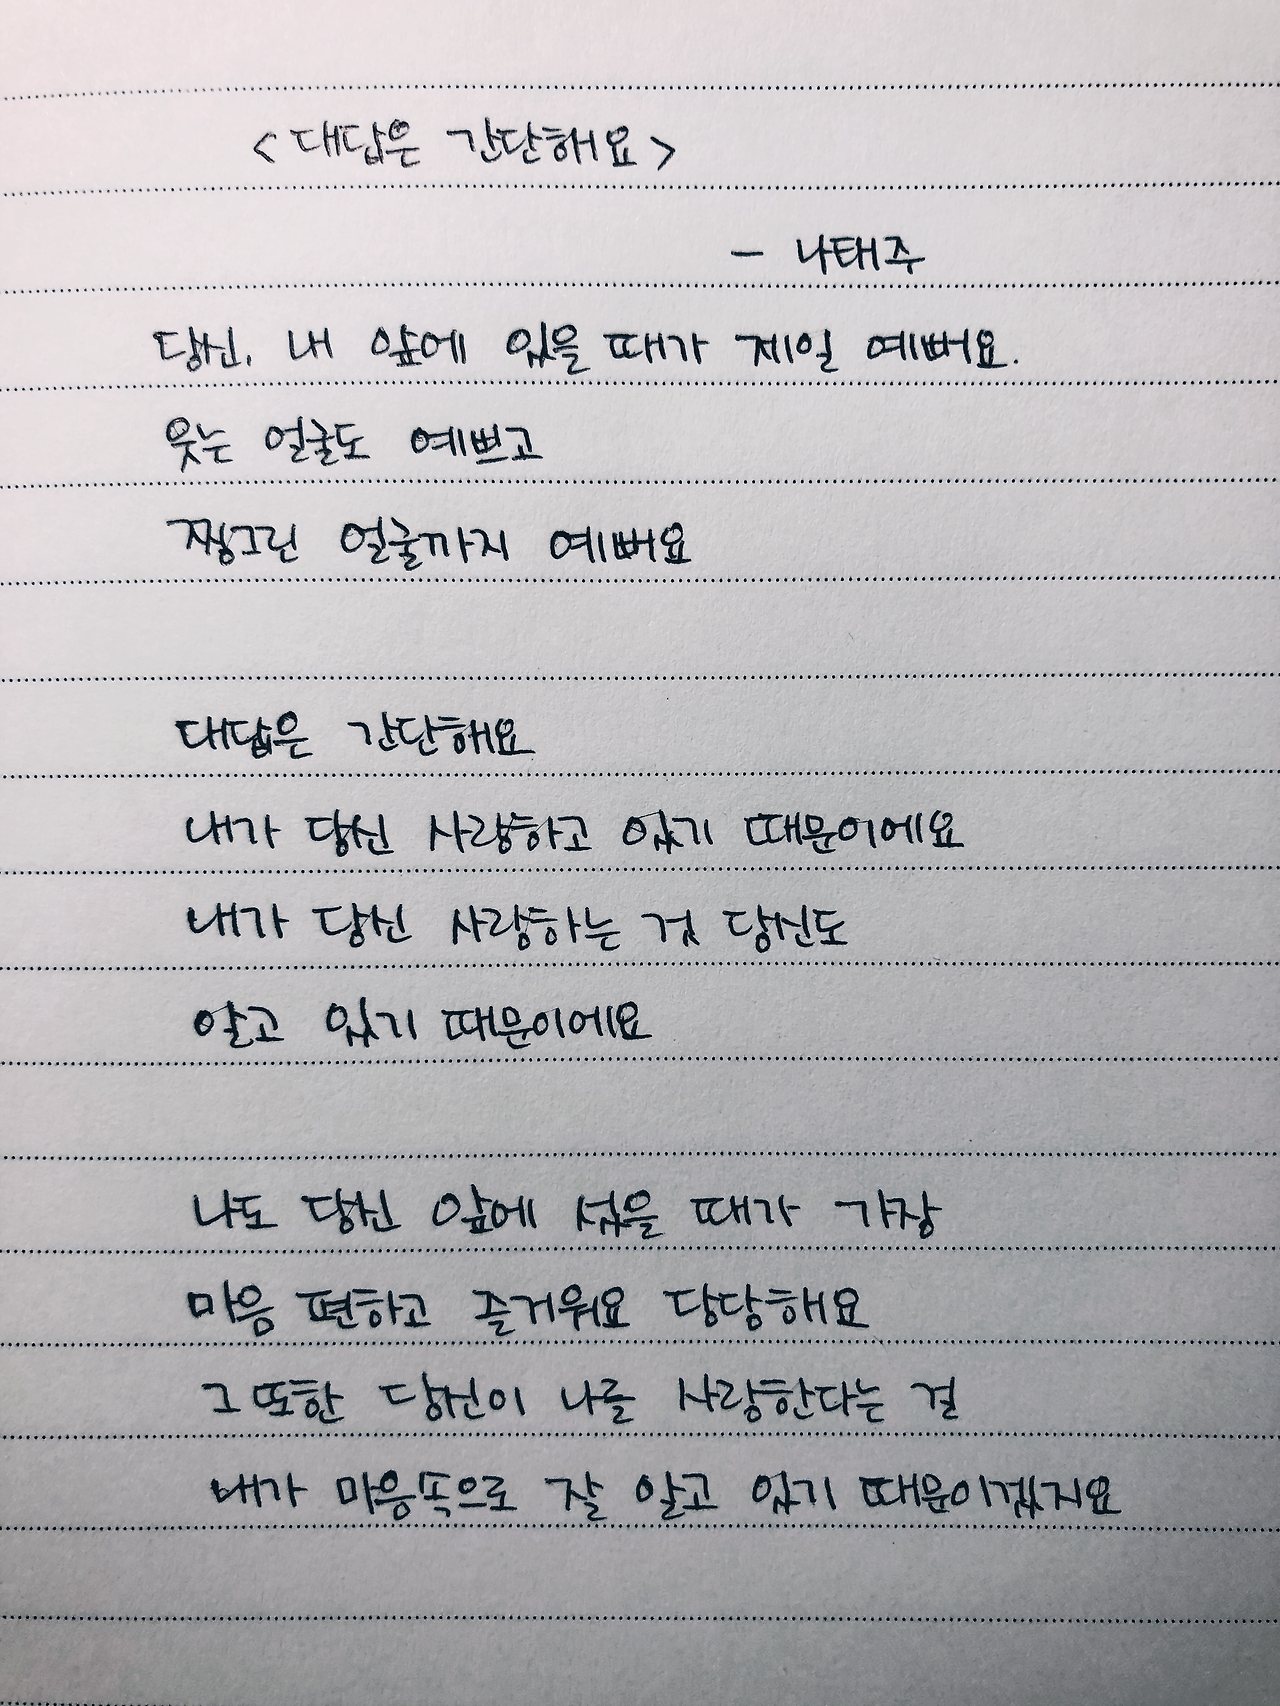 <대답은 간단해요>
- 나태주
당신, 내 앞에 있을 때가 제일 예뻐요.
웃는 얼굴도 예쁘고
찡그린 얼굴까지 예뻐요
대답은 간단해요
내가 당신 사랑하고 있기 때문이에요
내가 당신 사랑하는 것 당신도
알고 있기 때문이에요
나도 당신 앞에 섰을 때가 가장
마음 편하고 즐거워요 당당해요
그 또한 당신이 나를 사랑한다는 걸
내가 마음속으로 잘 알고 있기 때문이겠지요